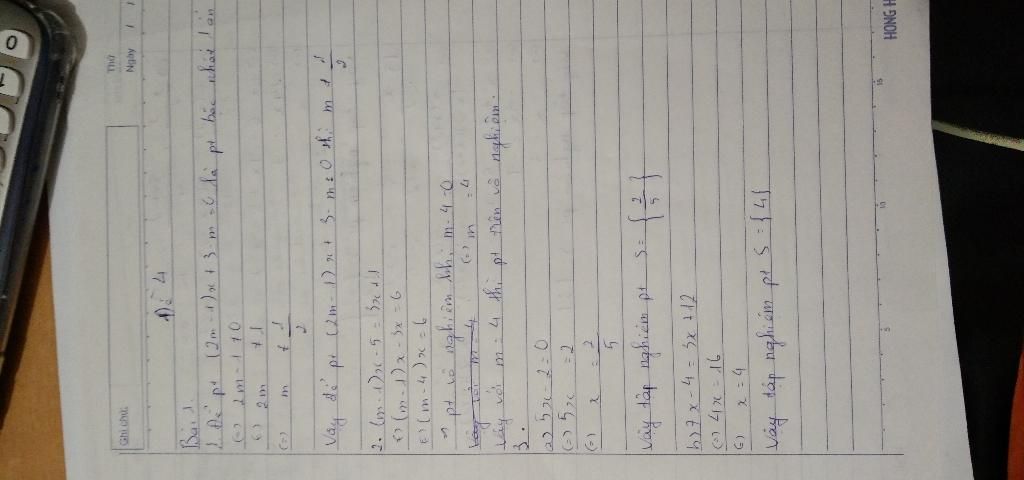 Ghi chú:
Thứ
Ngày
Đề 4
Bài 1.
1. Để pt (2m-1)x + 3-m = 0 là pt bậc nhất 1 ẩn
(=) 2m - 1 ≠ 0
(=) 2m ≠ 1
(=) m ≠ 1/2
Vậy để pt (2m-1)x + 3-m = 0 thì m ≠ 1/2
2. (m-1)x - 5 = 3x + 1
(=) (m-1)x - 3x = 6
(=) (m-4)x = 6
=> pt vô nghiệm khi m-4 = 0
Vậy với m = 4
(=) m = 4
Vậy với m = 4 thì pt trên vô nghiệm.
3.
a) 5x - 2 = 0
(=) 5x = 2
(=) x = 2/5
Vậy tập nghiệm pt S = {2/5}
b) 7x - 4 = 3x + 12
(=) 4x = 16
(=) x = 4
Vậy tập nghiệm pt S = {4}
5 10 15
HONG H